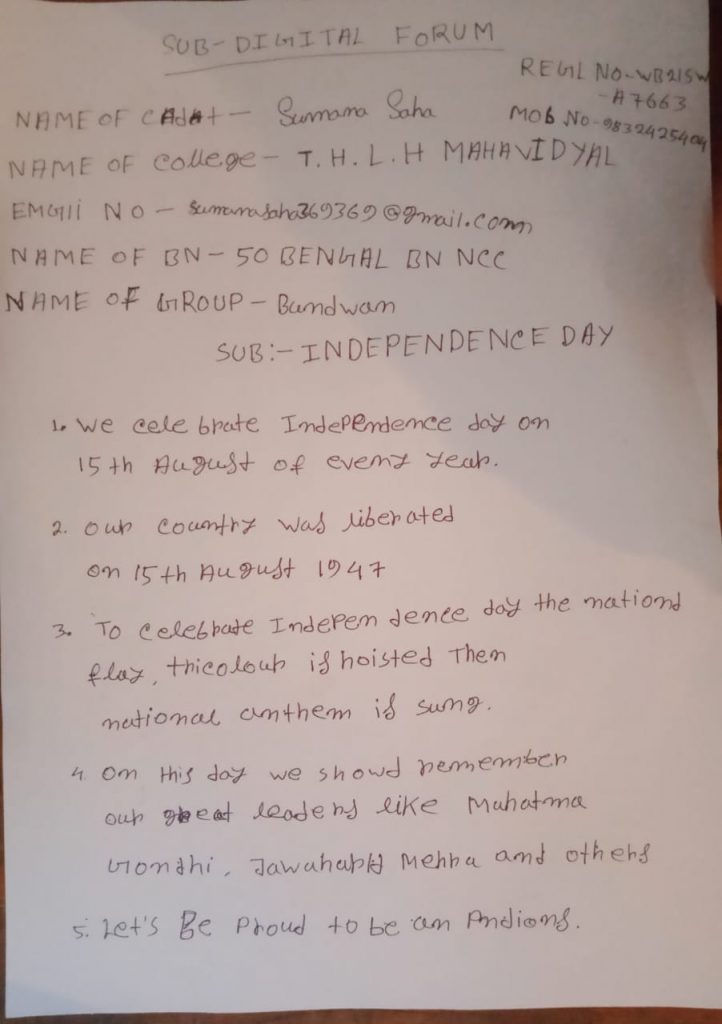 SUB-DIGITAL FORUM
REGL NO-WB21SW
-A7663
NAME OF CAdAt- Sumana Saha
MOB No-9832425404
NAME OF College- T.H.L.H MAHAVIDYAL
EMGIli NO- sumanasaha369369@gmail.com
NAME OF BN- 50 BENGAL BN NCC
NAME OF GROUP- Burdwan
SUB:- INDEPENDENCE DAY
1. We celebrate Independence day on
15th August of every year.
2. our country was liberated
on 15th August 1947
3. To celebrate Independence day the nationd
flag, tricolour is hoisted Then
national anthem is sung.
4. On this day we showd remember
our great leaders like Mahatma
Gondhi, Jawaharla Nehra and others
5. Let's Be Proud to be an Indions.